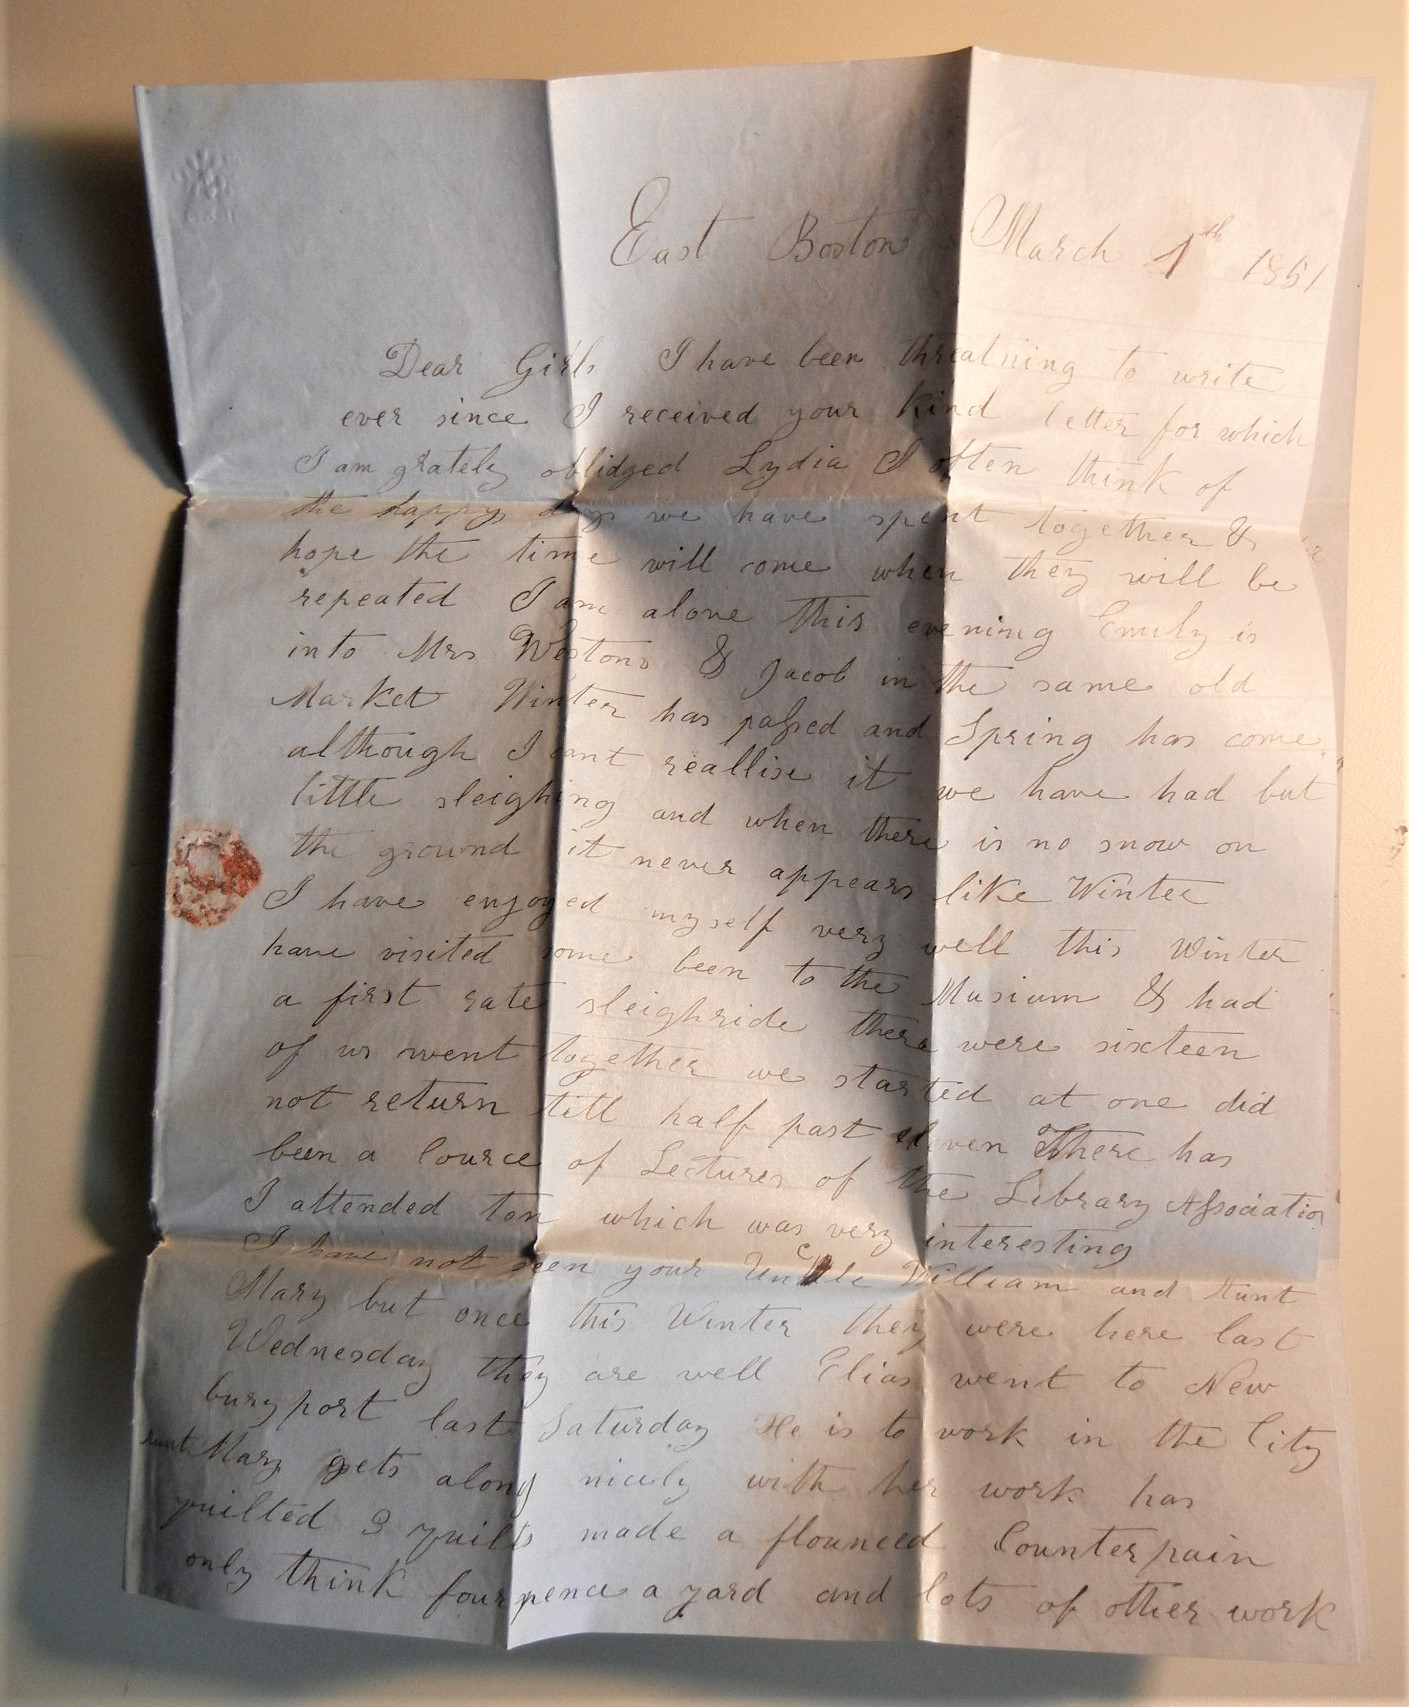 East Boston March 4th 1851
Dear Girls I have been threatning to write
ever since I received your kind letter for which
I am grately oblidged Lydia I often think of
the happy days we have spent together &
hope the time will come when they will be
repeated I am alone this evening Emily is
into Mrs Westons & Jacob in the same old
Market Winter has passed and Spring has come
although I cant reallise it we have had but
little sleighing and when there is no snow on
the ground it never appears like Winter
I have enjoyed myself very well this Winter
have visited some been to the Musium & had
a first rate sleighride there were sixteen
of us went together we started at one did
not return till half past eleven There has
been a Cource of Lectures of the Library Association
I attended ten which was very interesting
I have not seen your Uncle William and Aunt
Mary but once this Winter they were here last
Wednesday they are well Elias went to New
buryport last Saturday He is to work in the City
Aunt Mary gets along nicely with her work has
quilted 3 quilts made a flounced Counterpain
only think fourpence a yard and lots of other work